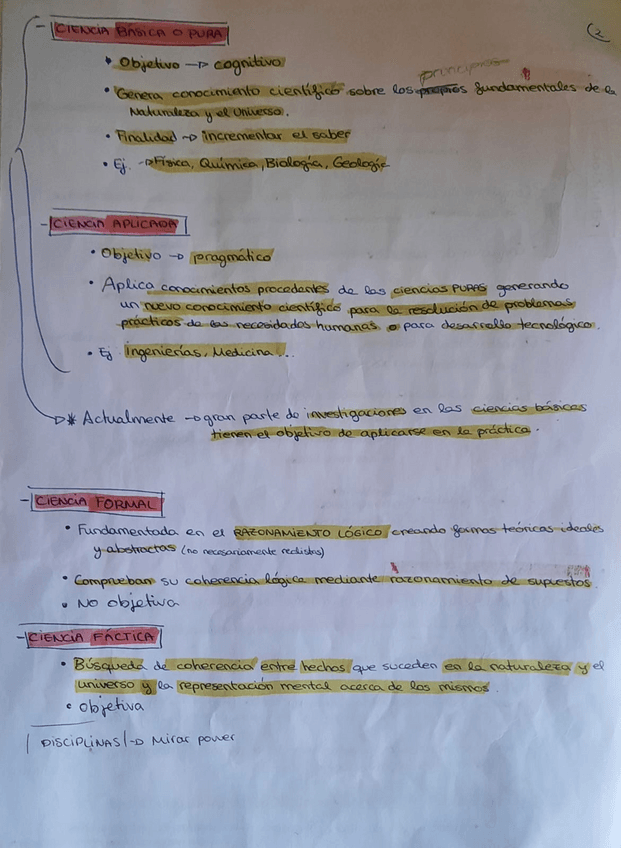 2
- CIENCIA BÁSICA O PURA
• Objetivo → cognitivo
principios
• Genera conocimiento científico sobre los propios fundamentales de la
Naturaleza y el Universo.
• Finalidad → incrementar el saber
• Ej. → Física, Química, Biología, Geología
- CIENCIA APLICADA
• Objetivo → pragmático
• Aplica conocimientos procedentes de las ciencias PURAS generando
un nuevo conocimiento científico para la resolución de problemas
prácticos de las necesidades humanas o para desarrollo tecnológico.
• Ej Ingenierías, Medicina...
→* Actualmente → gran parte de investigaciones en las ciencias básicas
tienen el objetivo de aplicarse en la práctica.
- CIENCIA FORMAL
• Fundamentada en el RAZONAMIENTO LÓGICO creando formas teóricas ideales
y abstractas (no necesariamente realistas)
• Comprueban su coherencia lógica mediante razonamiento de supuestos.
• NO objetiva
- CIENCIA FÁCTICA
• Búsqueda de coherencia entre hechos que suceden en la naturaleza y el
universo y la representación mental acerca de los mismos.
• objetiva
| DISCIPLINAS | → Mirar power